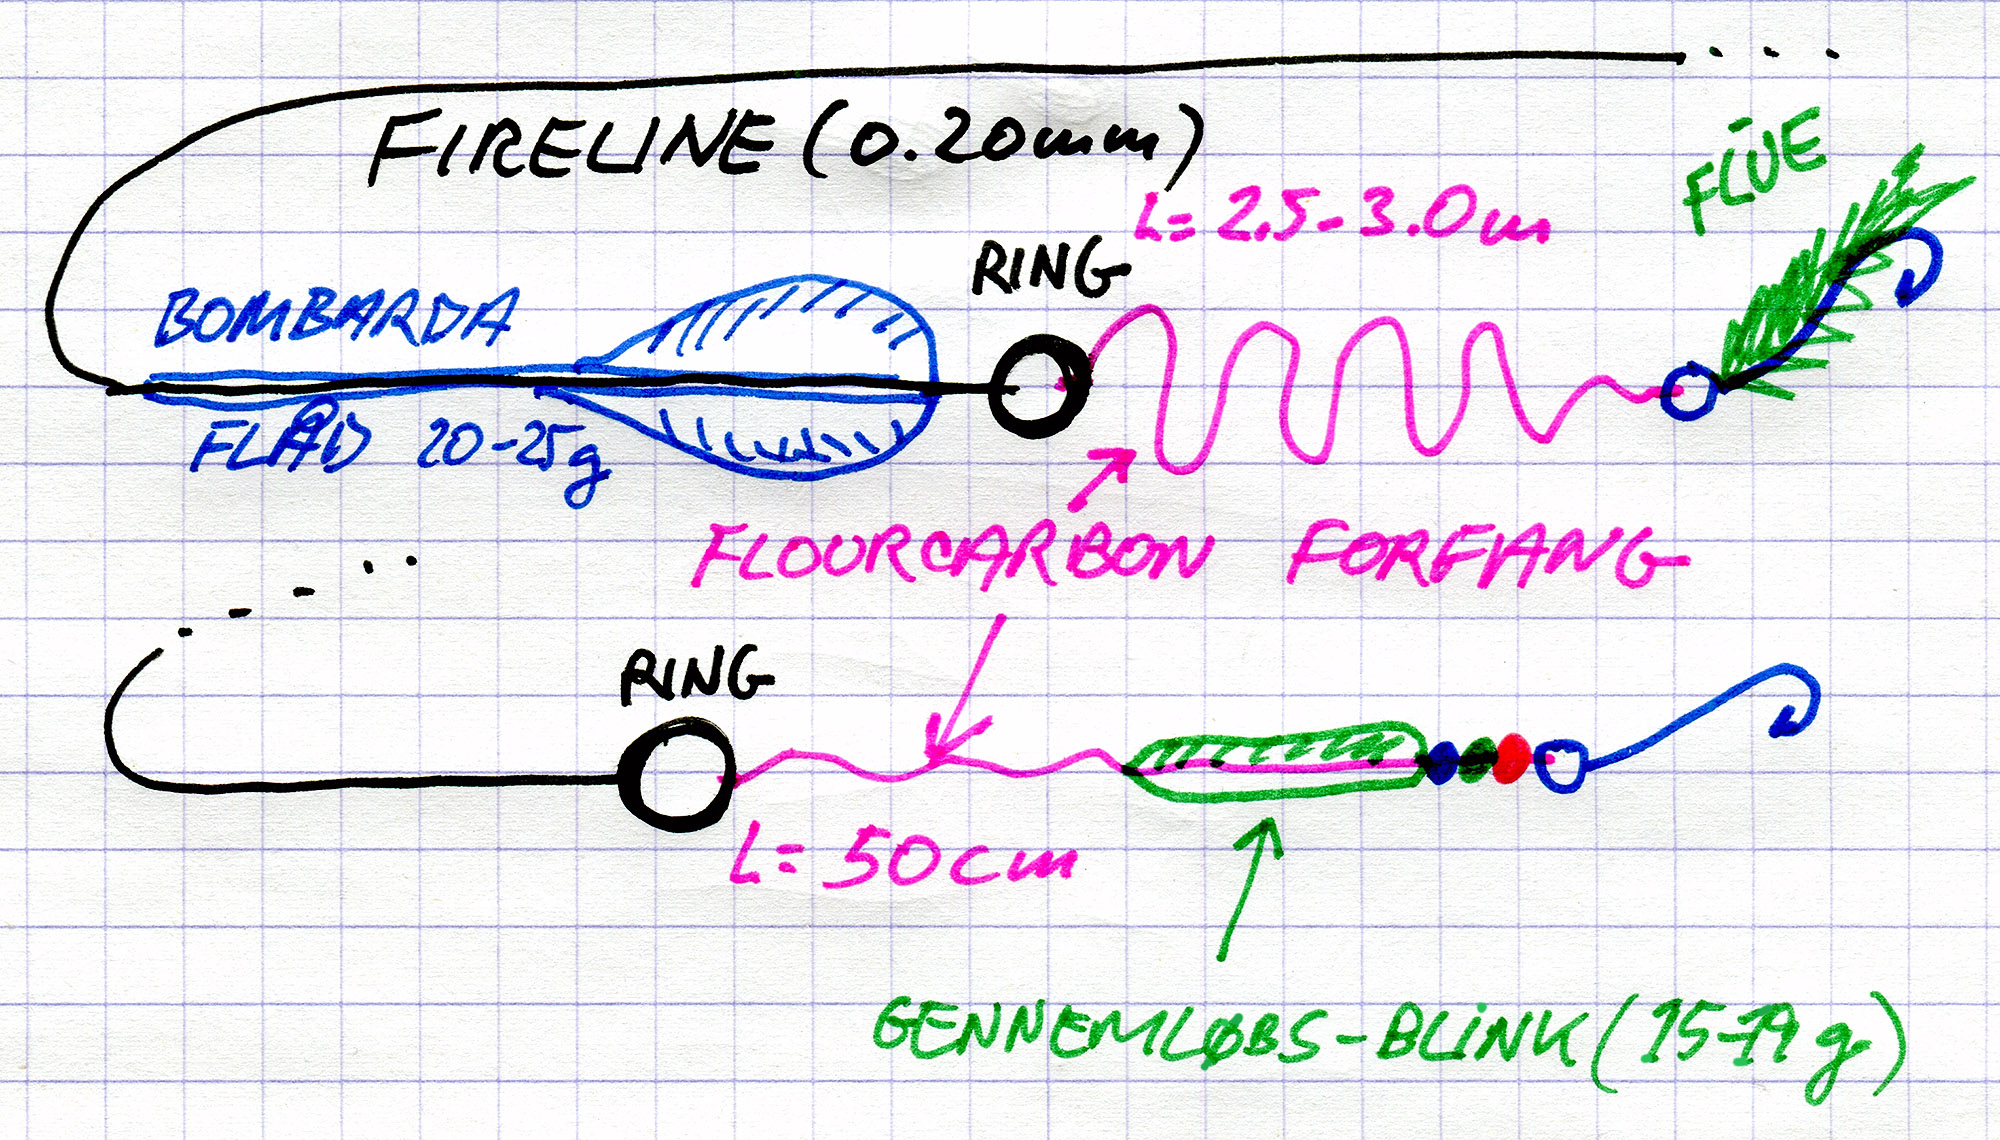 FIRELINE (0.20mm)
FLUE
L= 2.5-3.0m
RING
BOMBARDA
FLÅD 20-25g
FLOURCARBON FORFANG
RING
L= 50cm
GENNEMLØBS-BLINK (15-19 g)